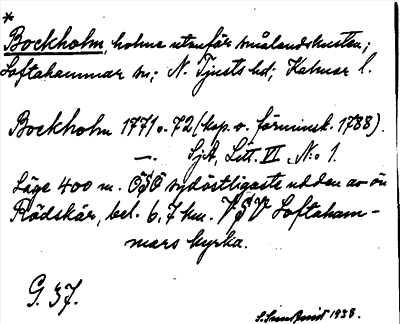 *
Bockholm, holme utanför smålandskusten;
Loftahammar sn; N. Tjusts hd; Kalmar l.
Bockholm 1771 o. 72 (kop. o. förminsk. 1788).
—. SjA, Litt. VI, N:o 1.
Läge 400 m. ÖSÖ sydöstligaste udden av ön
Rödskär, bel. 6,7 km. VSV Loftaham-
mars kyrka.
G. 37.
1938.